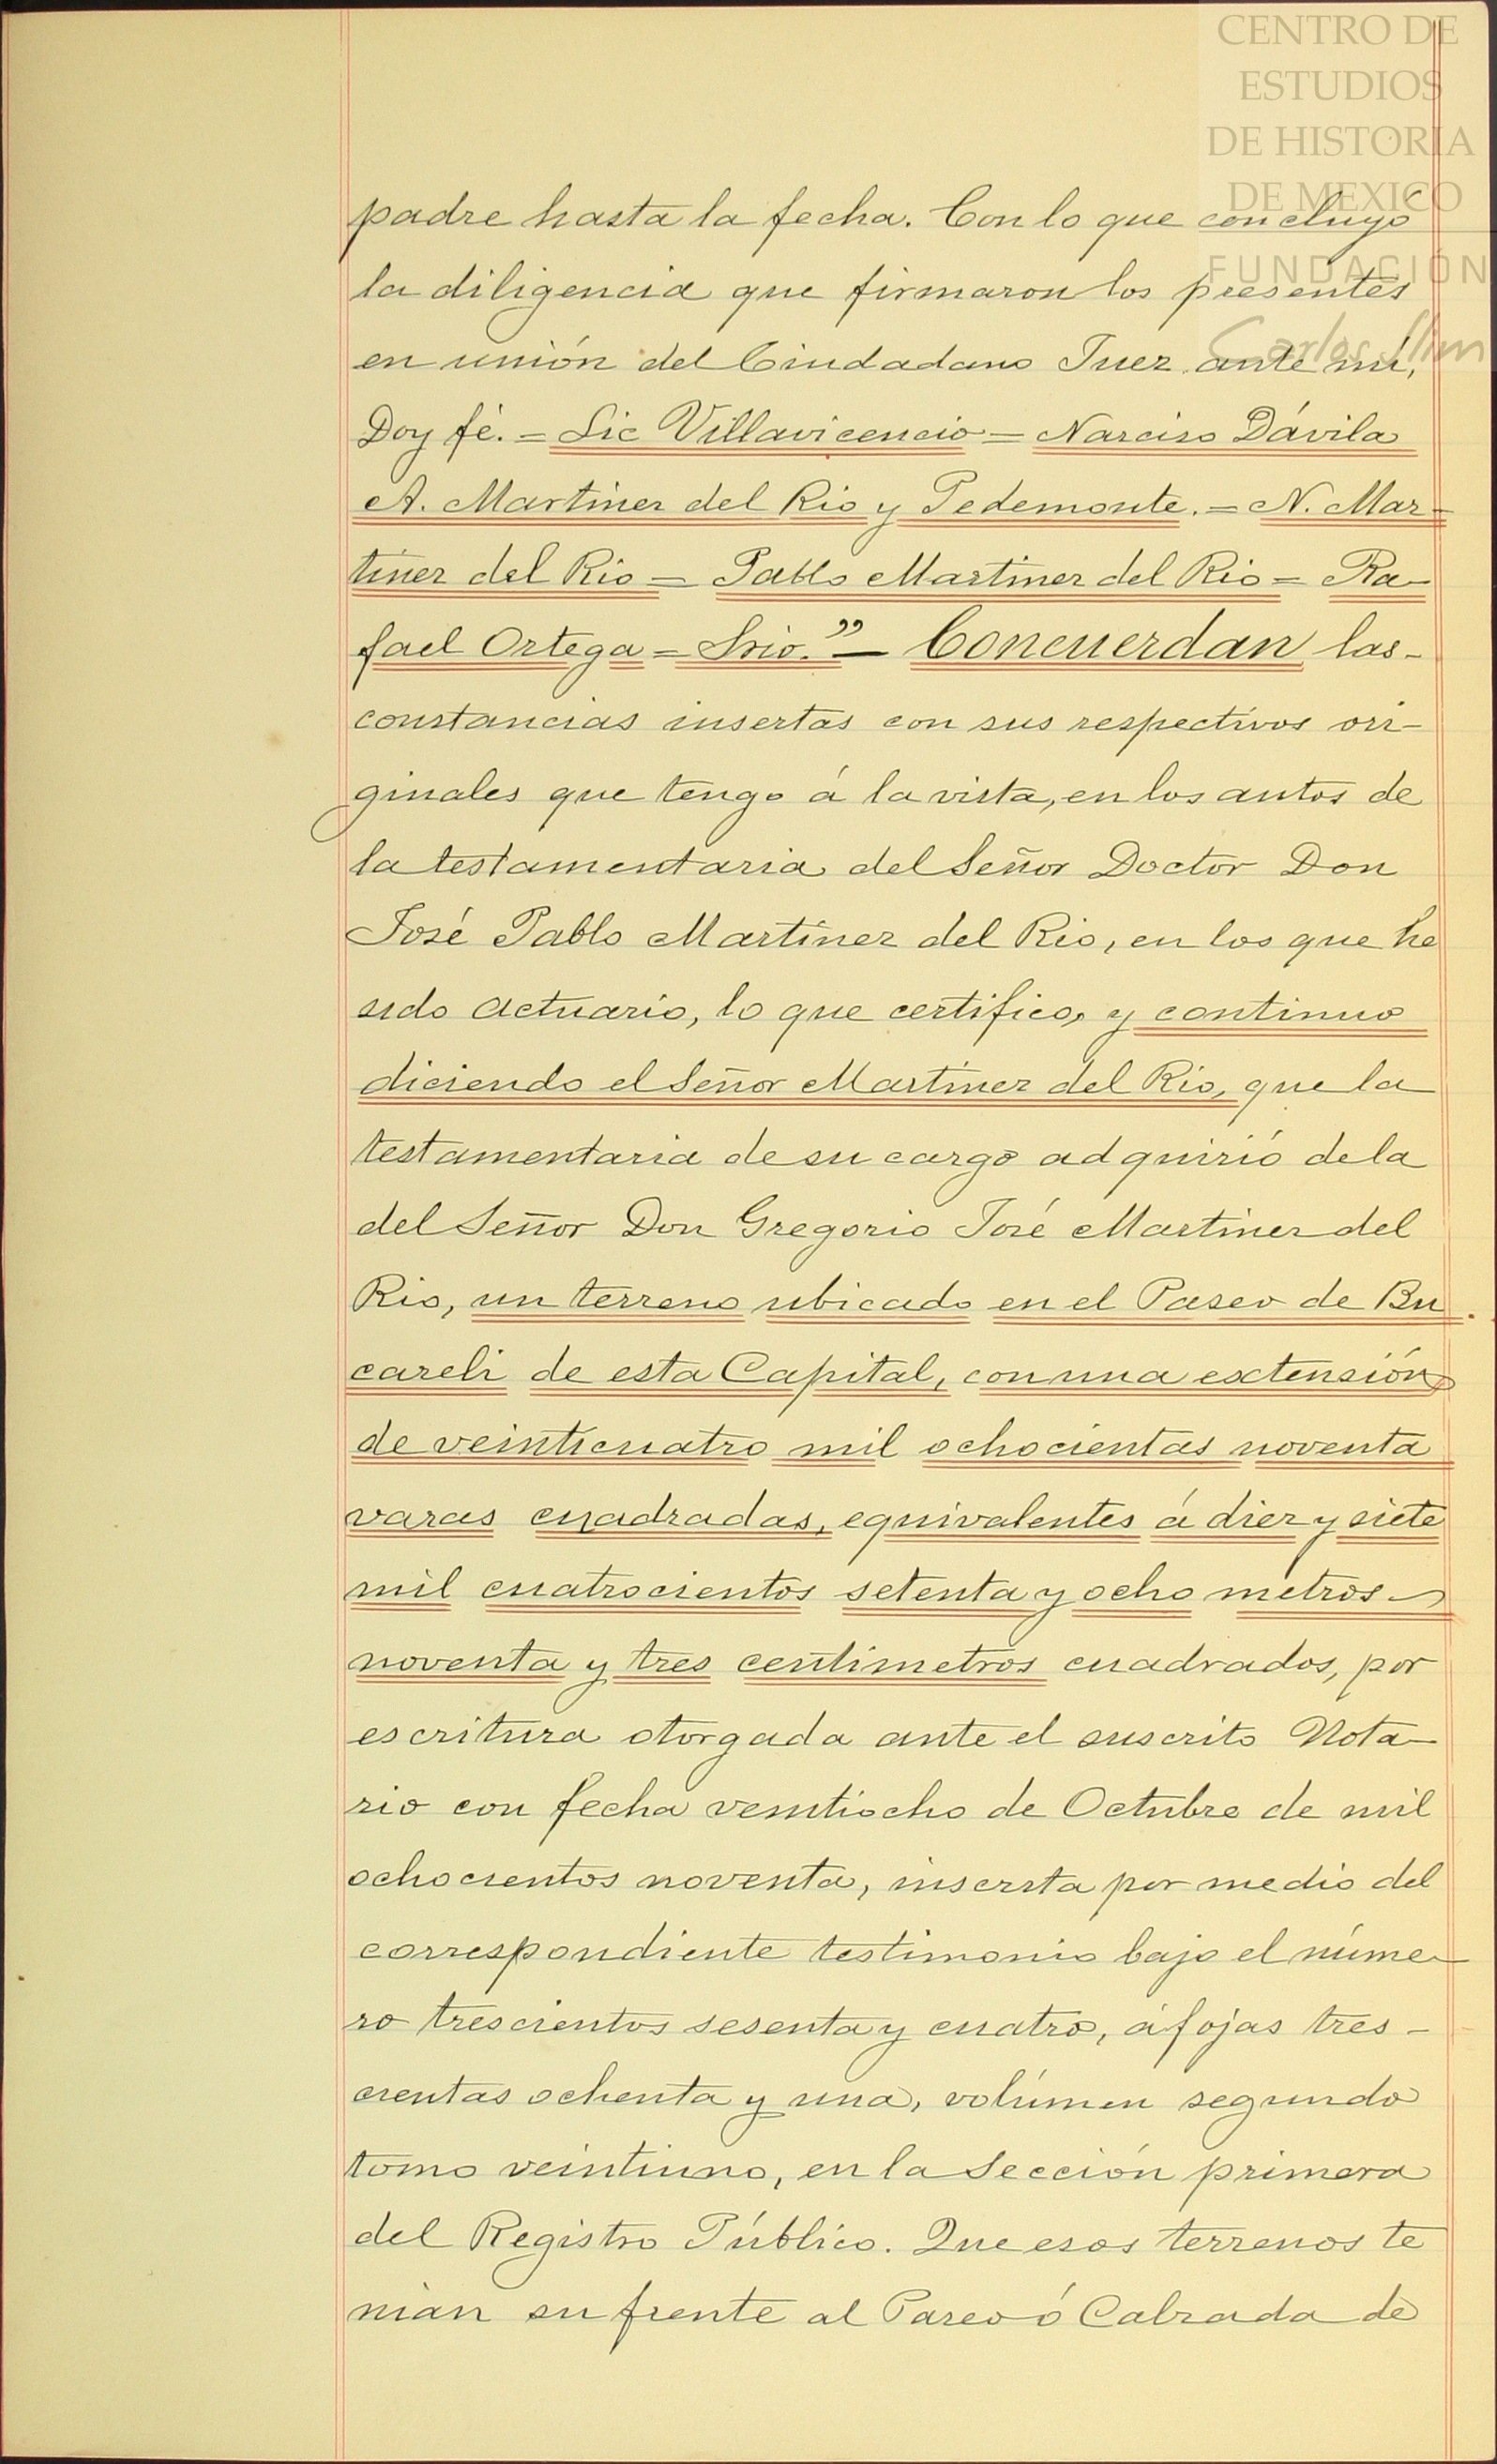 CENTRO DE
ESTUDIOS
DE HISTORIA
DE MEXICO
FUNDACIÓN
Carlos Slim
padre hasta la fecha. Con lo que concluyó
la diligencia que firmaron los presentes
en unión del Ciudadano Juez ante mí,
Doy fé. = Lic Villavicencio = Narciso Dávila
A. Martinez del Rio y Pedemonte. = N. Mar-
tinez del Rio = Pablo Martinez del Rio = Ra-
fael Ortega = Srio." — Concuerdan las-
constancias insertas con sus respectivos ori-
ginales que tengo á la vista, en los autos de
la testamentaria del Señor Doctor Don
José Pablo Martinez del Rio, en los que he
sido actuario, lo que certifico, y continuo
diciendo el Señor Martinez del Rio, que la
testamentaria de su cargo adquirió de la
del Señor Don Gregorio José Martinez del
Rio, un terreno ubicado en el Paseo de Bu
careli de esta Capital, con una extensión
de veinticuatro mil ochocientas noventa
varas cuadradas, equivalentes á diez y siete
mil cuatrocientos setenta y ocho metros
noventa y tres centimetros cuadrados, por
escritura otorgada ante el suscrito Nota-
rio con fecha veintiocho de Octubre de mil
ochocientos noventa, inscrita por medio del
correspondiente testimonio bajo el núme-
ro trescientos sesenta y cuatro, á fojas tres-
cientas ochenta y una, volúmen segundo
tomo veintiuno, en la Sección primera
del Registro Público. Que esos terrenos te
nian su frente al Paseo ó Calzada de